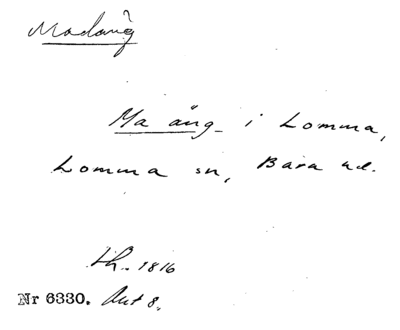 Madäng
Ma äng i Lomma,
Lomma sn, Bara hd.
1816
Nr 6330. Aut 8.